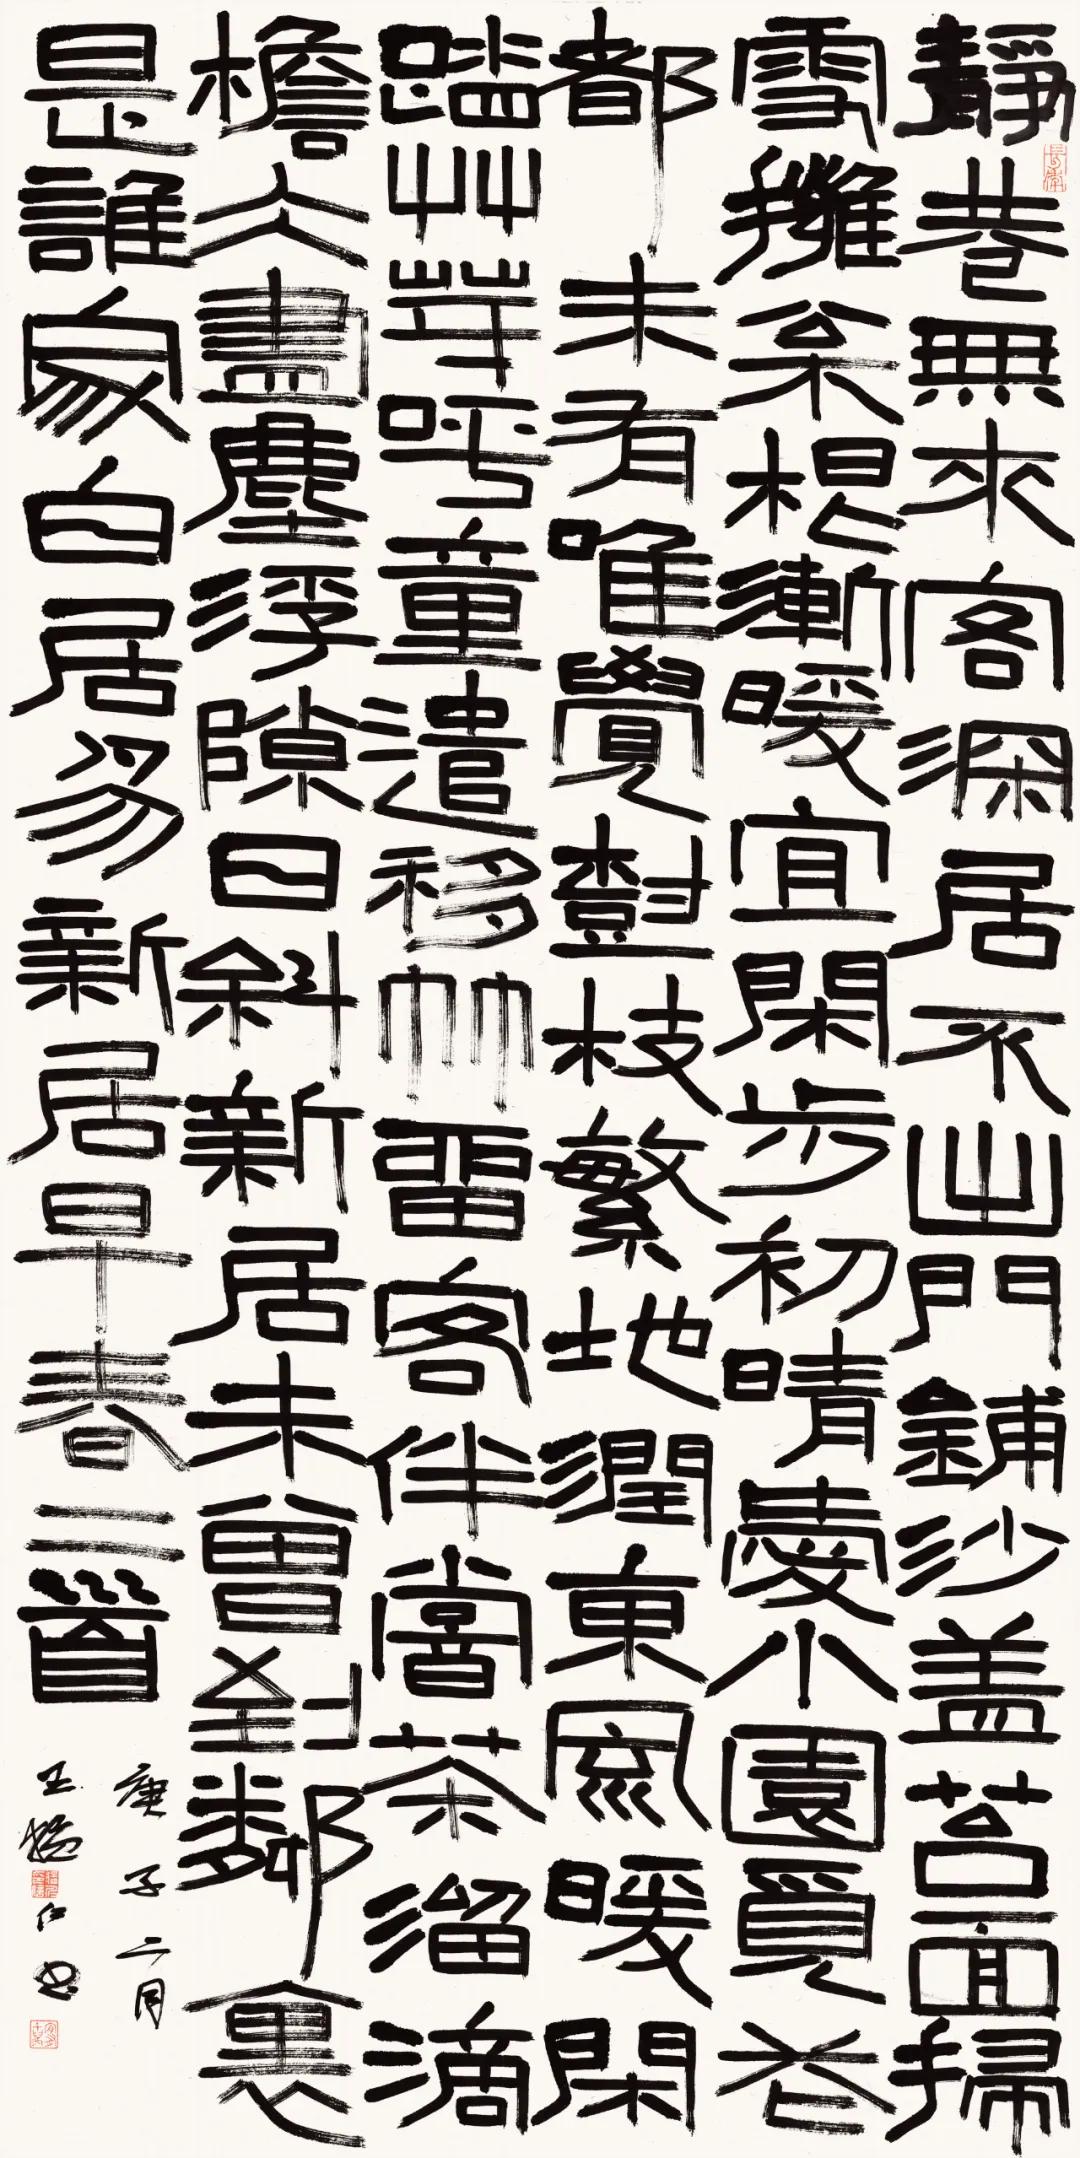 靜巷無來客深居不出門鋪沙盖苔面掃
雪擁枀根漸暖宜閑步初晴愛小園覓花
都未有唯覺樹枝繁地潤東風暖閑
踏草芽呼童遣移竹留客伴嘗茶溜滴
檐仌盡塵浮隙日斜新居未曾到鄰裏
是誰家白居易新居早春二首
庚子二月
王猛仁书